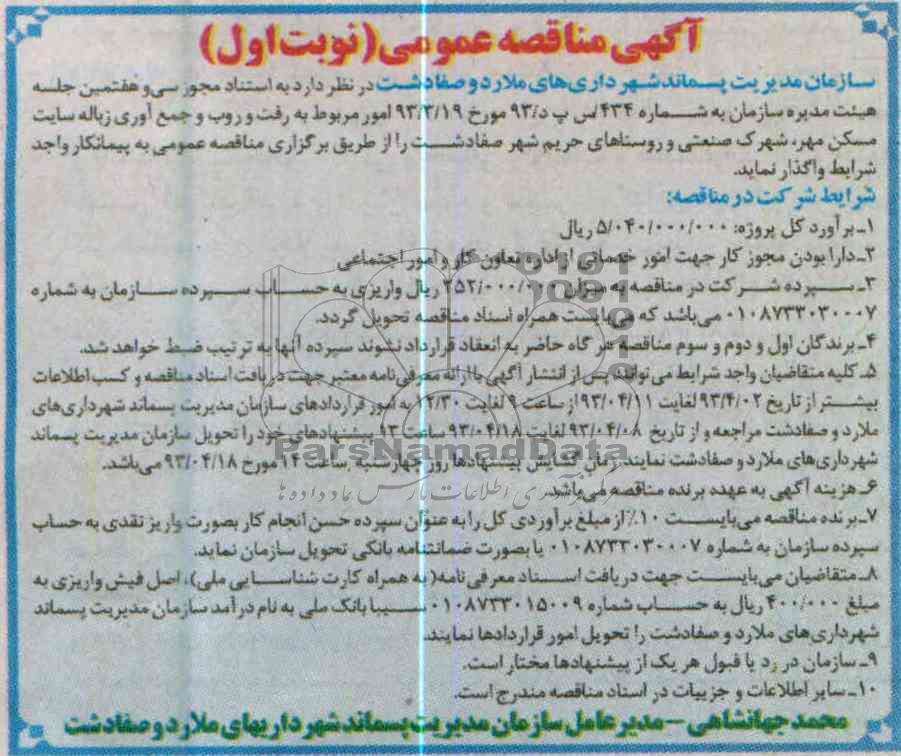 آگهی مناقصه عمومی (نوبت اول)
سازمان مدیریت پسماند شهرداری‌های ملارد و صفادشت در نظر دارد به استناد مجوز سی و هفتمین جلسه
هیئت مدیره سازمان به شماره ۴۳۴/س پ د/۹۳ مورخ ۹۳/۳/۱۹ امور مربوط به رفت و روب و جمع آوری زباله سایت
مسکن مهر، شهرک صنعتی و روستاهای حریم شهر صفادشت را از طریق برگزاری مناقصه عمومی به پیمانکار واجد
شرایط واگذار نماید.
شرایط شرکت در مناقصه:
۱ـ برآورد کل پروژه: ۵/۰۴۰/۰۰۰/۰۰۰ ریال
۲ـ دارا بودن مجوز کار جهت امور خدماتی از اداره تعاون کار و امور اجتماعی
۳ـ سپرده شرکت در مناقصه به میزان ۲۵۲/۰۰۰/۰۰۰ ریال واریزی به حساب سپرده سازمان به شماره
۰۱۰۸۷۳۳۰۳۰۰۰۷ می‌باشد که می‌بایست همراه اسناد مناقصه تحویل گردد.
۴ـ برندگان اول و دوم و سوم مناقصه هر گاه حاضر به انعقاد قرارداد نشوند سپرده آنها به ترتیب ضبط خواهد شد.
۵ـ کلیه متقاضیان واجد شرایط می‌توانند پس از انتشار آگهی با ارائه معرفی‌نامه معتبر جهت دریافت اسناد مناقصه و کسب اطلاعات
بیشتر از تاریخ ۹۳/۴/۰۲ لغایت ۹۳/۰۴/۱۱ از ساعت ۹ لغایت ۱۲/۳۰ به امور قراردادهای سازمان مدیریت پسماند شهرداری‌های
ملارد و صفادشت مراجعه و از تاریخ ۹۳/۰۴/۰۸ لغایت ۹۳/۰۴/۱۸ ساعت ۹۳ پیشنهادهای خود را تحویل سازمان مدیریت پسماند
شهرداری‌های ملارد و صفادشت نمایند. زمان گشایش پیشنهادها روز چهارشنبه ساعت ۱۴ مورخ ۹۳/۰۴/۱۸ می‌باشد.
۶ـ هزینه آگهی به عهده برنده مناقصه می‌باشد.
۷ـ برنده مناقصه می‌بایست ۱۰٪ از مبلغ برآوردی کل را به عنوان سپرده حسن انجام کار بصورت واریز نقدی به حساب
سپرده سازمان به شماره ۰۱۰۸۷۳۳۰۳۰۰۰۷ یا بصورت ضمانتنامه بانکی تحویل سازمان نماید.
۸ـ متقاضیان می‌بایست جهت دریافت اسناد معرفی نامه (به همراه کارت شناسایی ملی)، اصل فیش واریزی به
مبلغ ۴۰۰/۰۰۰ ریال به حساب شماره ۰۱۰۸۷۳۳۰۱۵۰۰۹ سیبا بانک ملی به نام درآمد سازمان مدیریت پسماند
شهرداری‌های ملارد و صفادشت را تحویل امور قراردادها نمایند.
۹ـ سازمان در رد یا قبول هر یک از پیشنهادها مختار است.
۱۰ـ سایر اطلاعات و جزییات در اسناد مناقصه مندرج است.
محمد جهانشاهی – مدیر عامل سازمان مدیریت پسماند شهرداریهای ملارد و صفادشت
ParsNamadData